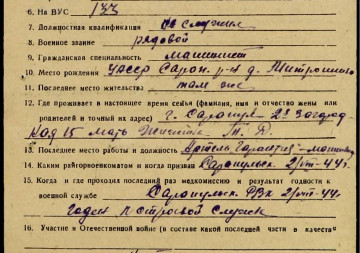 6. На ВУС 133
7. Должностная квалификация не служил
8. Военное звание рядовой
9. Гражданская специальность машинист
10. Место рождения УАССР Сарап. р-н д. Митрошино
11. Последнее место жительства там же
12. Где проживает в настоящее время семья (фамилия, имя и отчество жены или
родителей и точный их адрес) г. Сарапул 2й
15 мать
13. Последнее место работы и должность Артель
14. Каким райгорвоенкоматом и когда призван Сарапульск. 2/VIII-44г.
15. Когда и где проходил последний раз медкомиссию и результат годности к
военной службе Сарапульск РВК 2/VIII-44г.
годен к строевой службе
16. Участие в Отечественной войне (в составе какой последней части в качестве